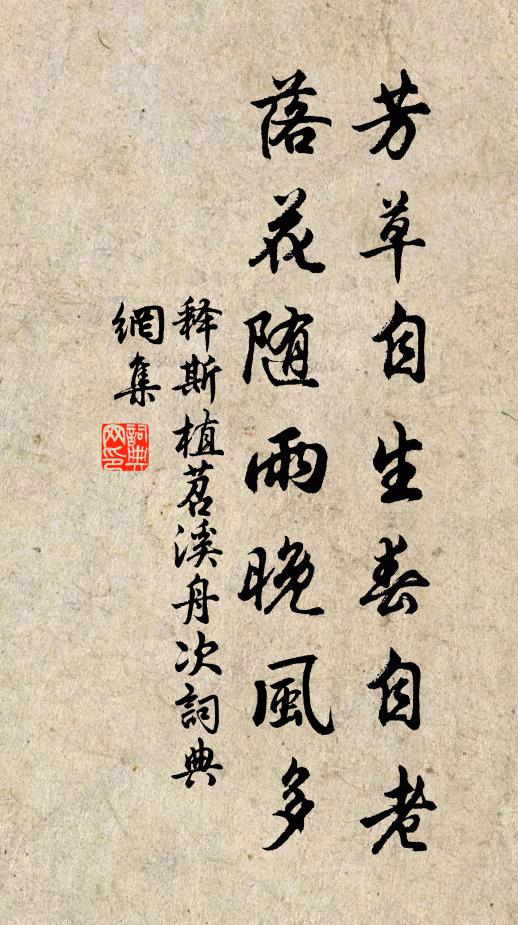 芳草自生春自老
落花随雨晚風多
释斯植苕溪舟次詞典
網集
詞典
网印